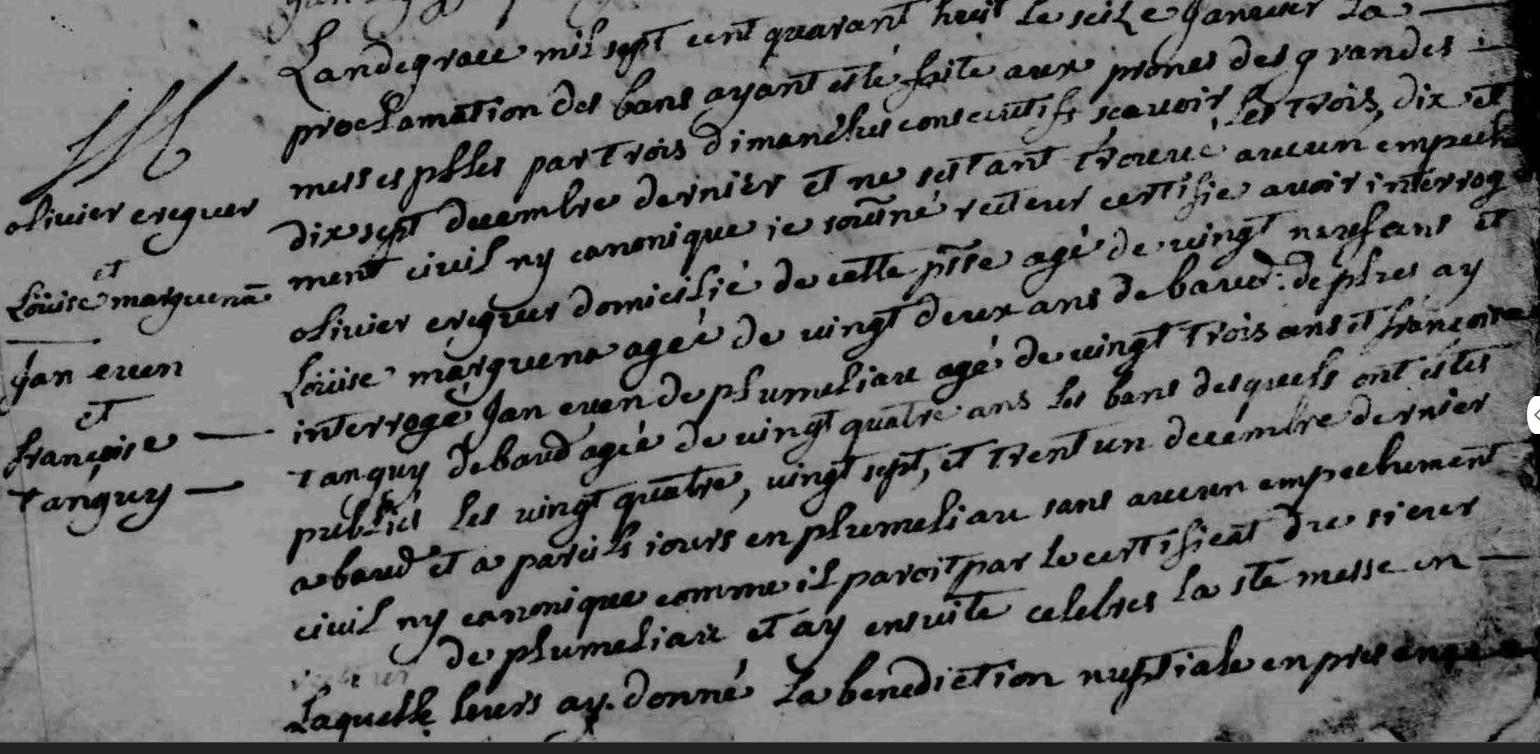 M
olivier ereguer
et
Loüise marguena
Jan even
et
françoise
Tanguy
Landegrace mil sept cent quarant huit le seize Janvier La
proclamation des bans ayant esté faite aux prônes des grandes
messes pslles par trois dimanches consecutifs scavoir les trois, dix et
dix sept decembre dernier et ne sestant trouvé aucun empeche
ment civil ny canonique ie sousné recteur certifie avoir interrogé
olivier ereguer domicilié de cette psse agé de vingt neuf ans et
Loüise marguena agée de vingt deux ans de baud. de plus ay
interrogé Jan even de plumeliau agé de vingt trois ans et françoise
Tanguy de baud agée de vingt quatre ans les bans desquels ont estes
publiés les vingt quatre, vingt sept, et trent un decembre dernier
a baud et a pareils iours en plumeliau sans aucun empechement
civil ny canonique comme il paroit par le certificat du sieur
de plumeliau et ay ensuite celebres la ste messe en
Laquelle leurs ay donné La benediction nuptiale en presence